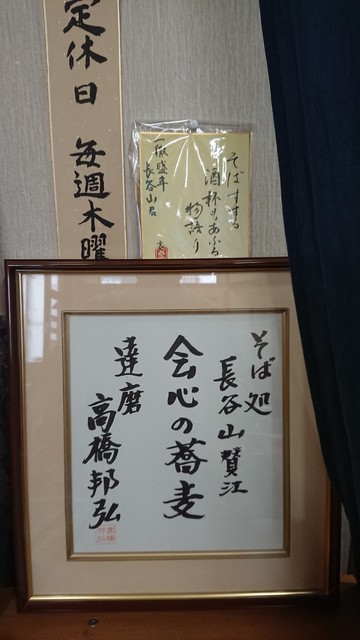 定休日 毎週木曜
そばすする
酒杯もあふる
物語り
一徹盛年
長谷山君
そば処
長谷山賛江
会心の蕎麦
達磨
高橋邦弘